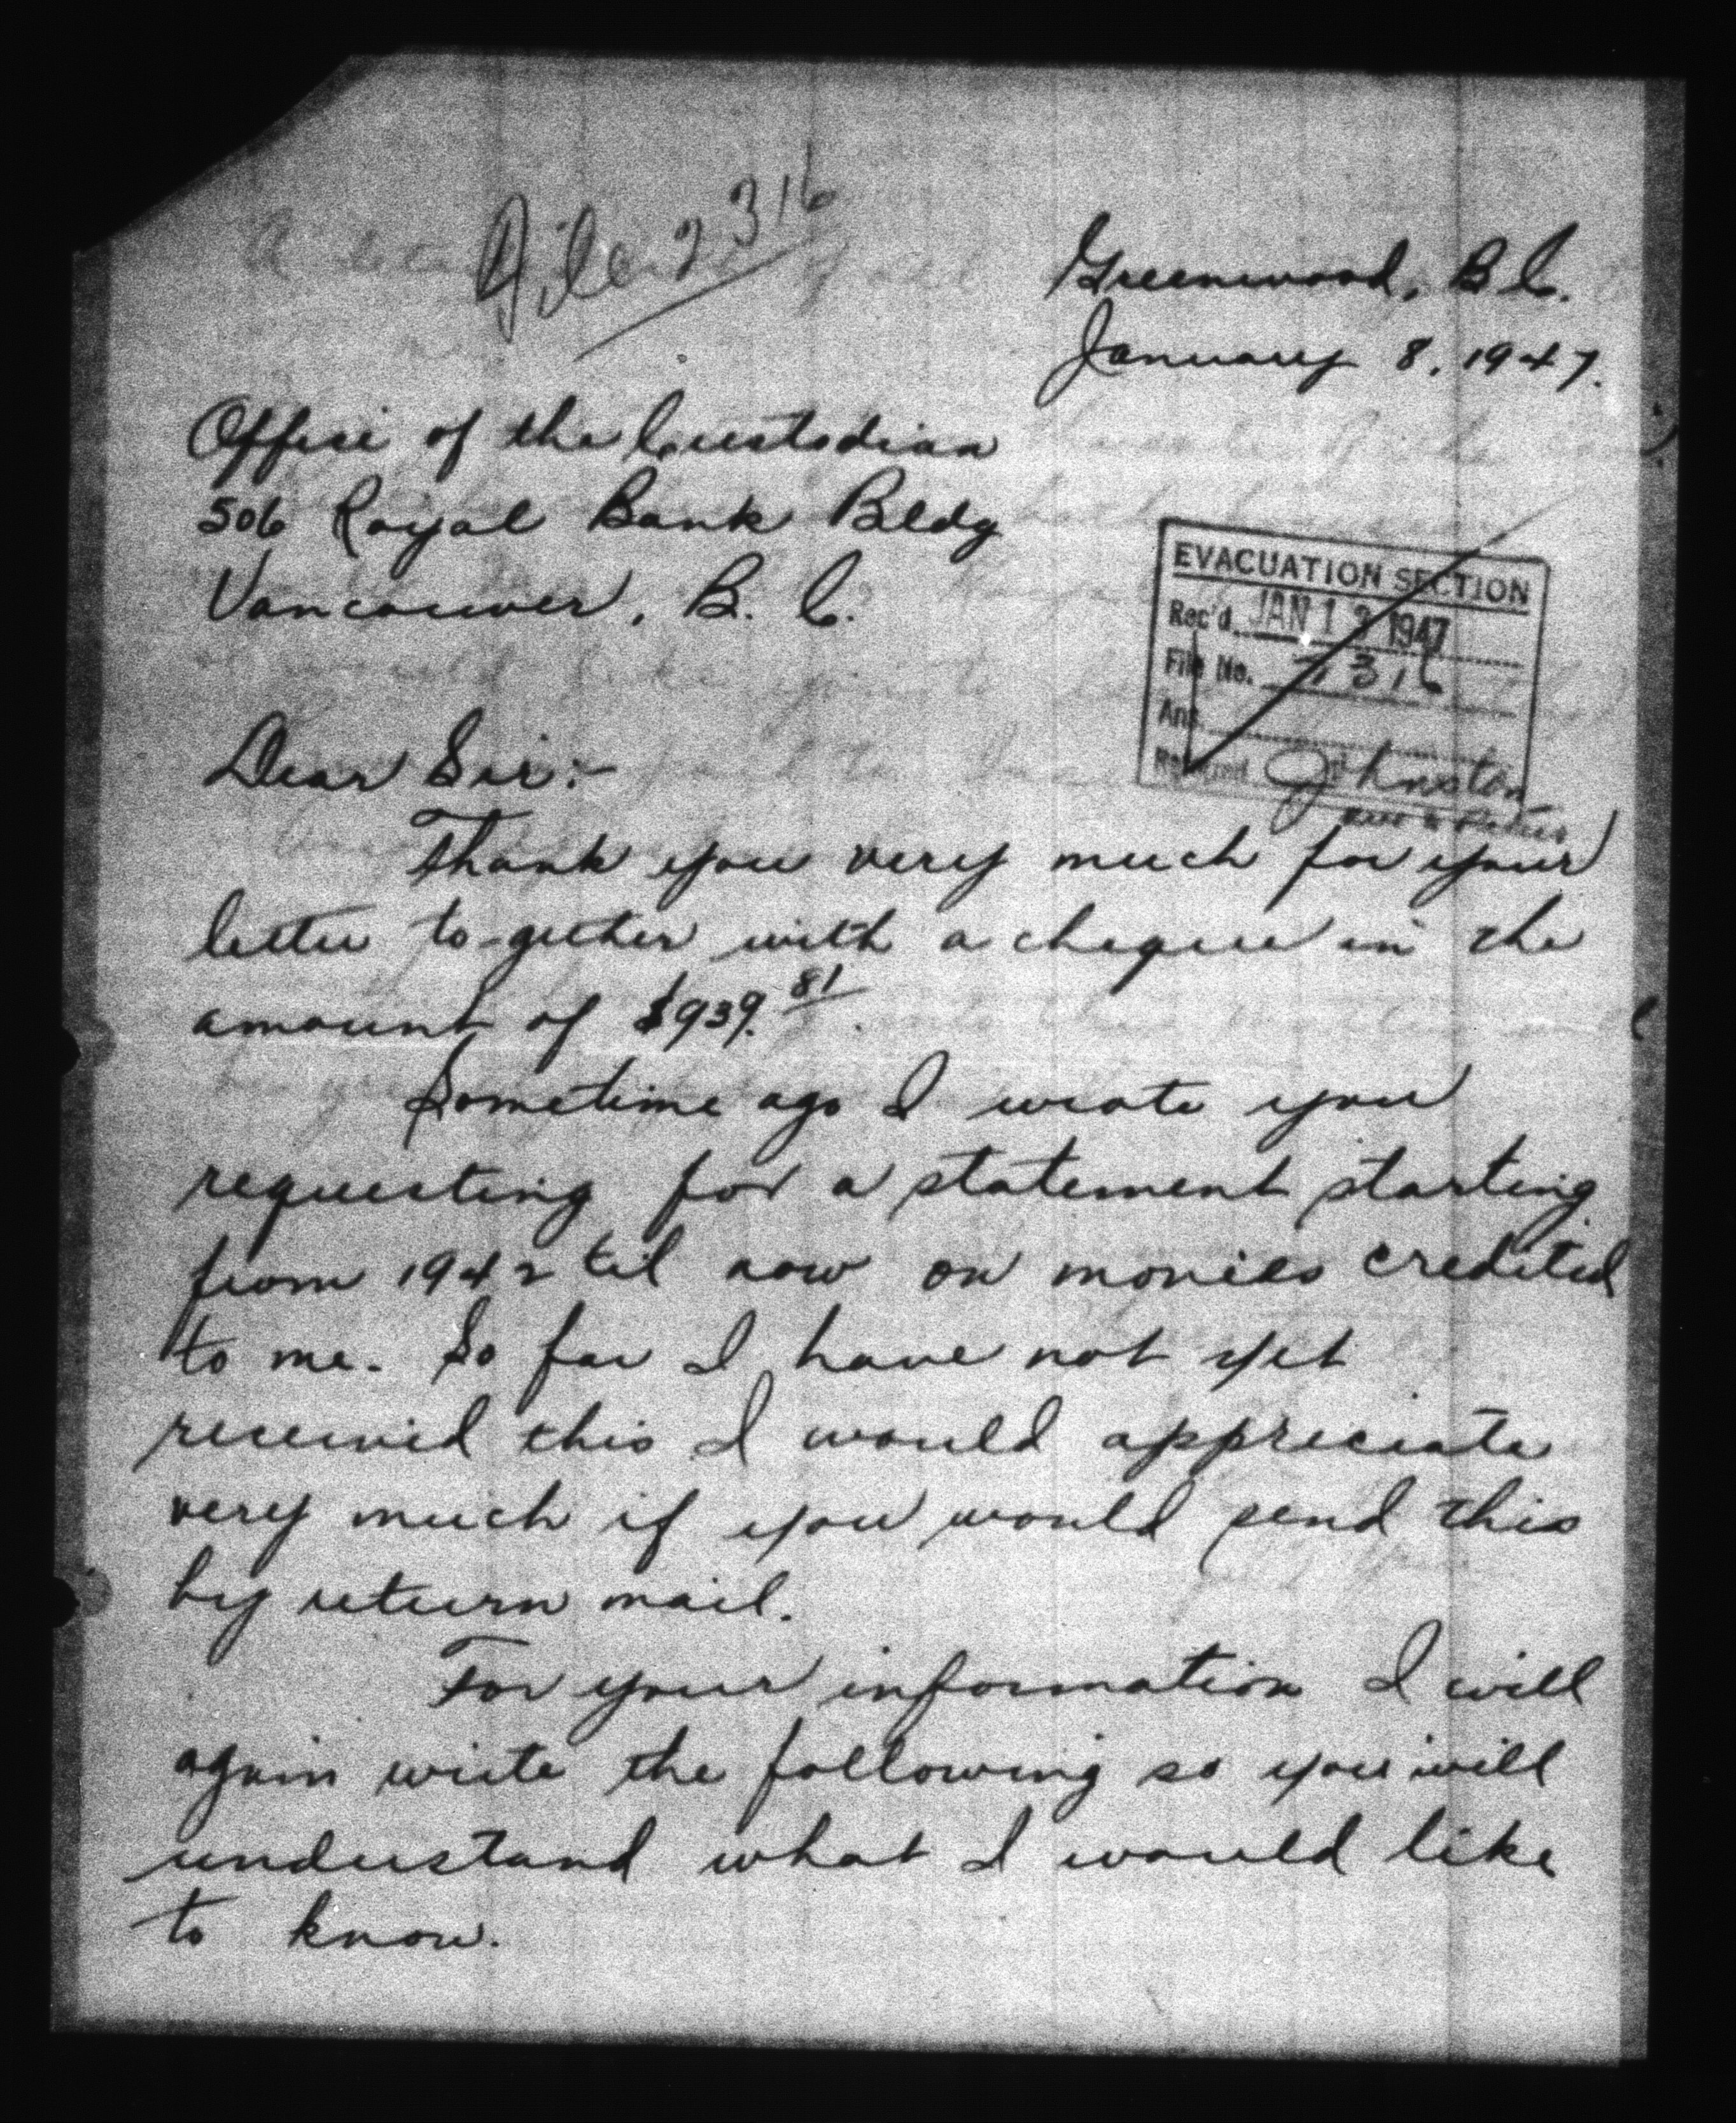 File 2316
Greenwood, B.C.
January 8, 1947.
Office of the Custodian
506 Royal Bank Bldg
Vancouver, B. C.
EVACUATION SECTION
Rec'd. JAN 13 1947
File No. 7316
Ans.
Referred Johnston
Dear Sir:-
Thank you very much for your
letter to-gether with a cheque in the
amount of $939.81.
Sometime ago I wrote you
requesting for a statement starting
from 1942 til now on monies credited
to me. So far I have not yet
received this I would appreciate
very much if you would send this
by return mail.
For your information I will
again write the following so you will
understand what I would like
to know.